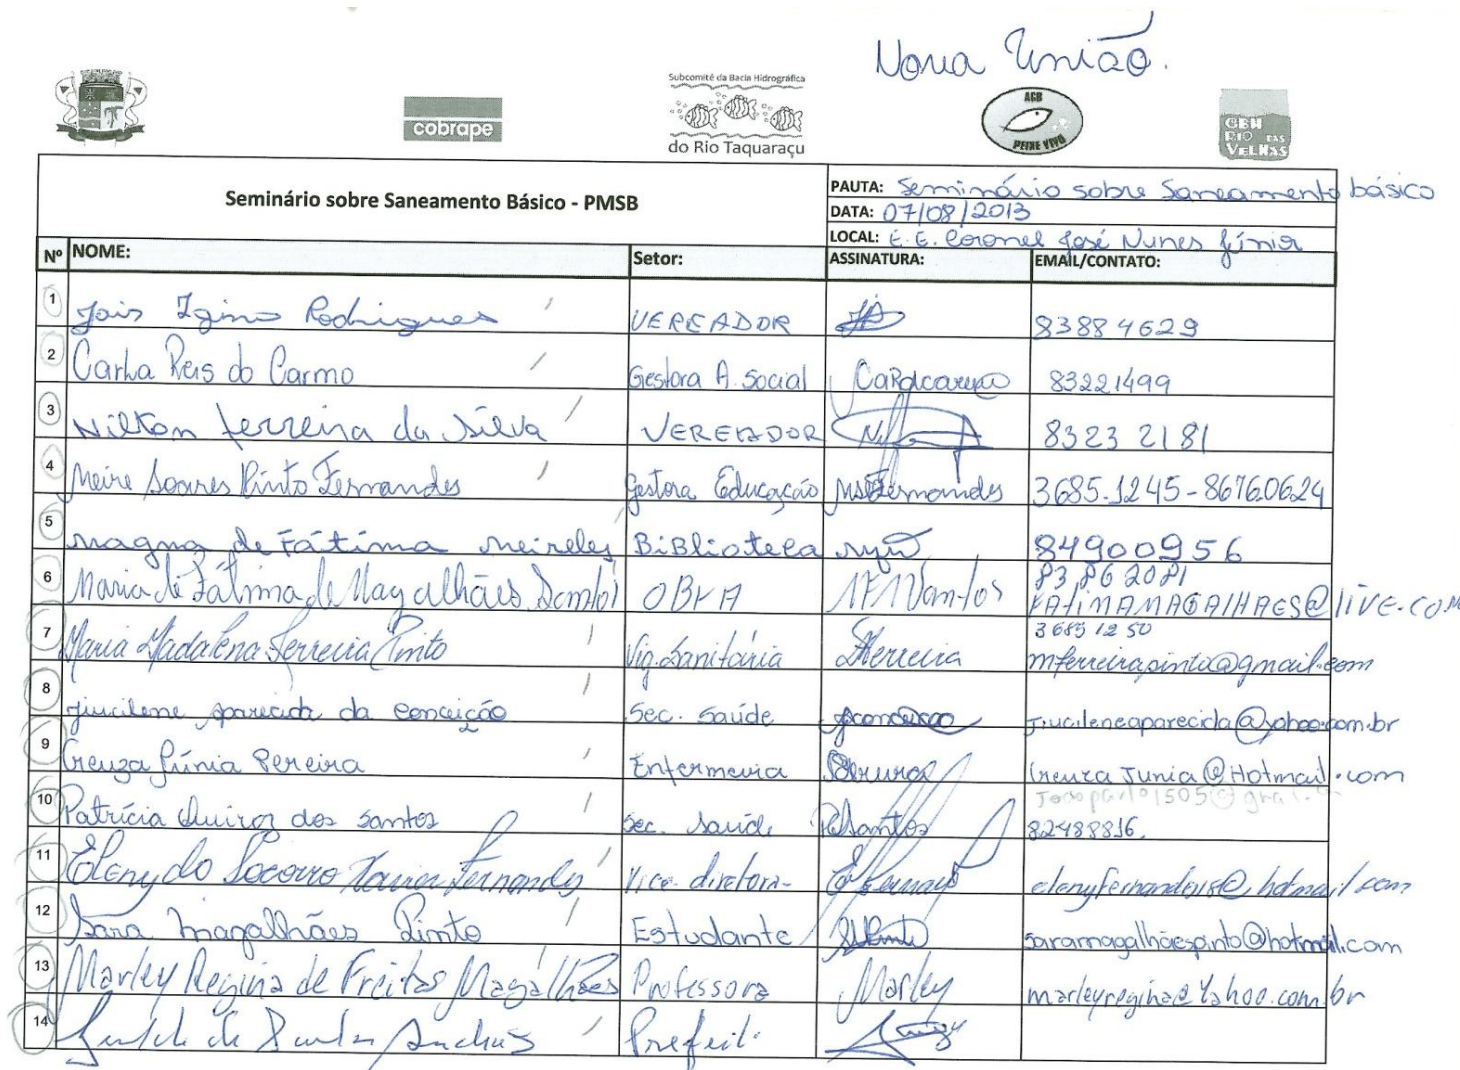 Nova União.
Subcomitê da Bacia Hidrográfica
do Rio Taquaraçu
cobrape
AGB
PEIXE VIVO
CBH
RIO DAS
VELHAS
Seminário sobre Saneamento Básico - PMSB
PAUTA: Seminário sobre Saneamento básico
DATA: 07/08/2013
LOCAL: E.E. Coronel José Nunes Júnior
Nº NOME: Setor: ASSINATURA: EMAIL/CONTATO:
1 Rodrigues VEREADOR 83884629
2 Carla Reis do Carmo Gestora A. Social 83221499
3 Nilton ferreira da Silva VEREADOR 8323 2181
4 Meire Soares Pinto Fernandes Gestora Educação MSFernandes 3685.1245-8676.0624
5 Magna de Fátima Meireles BiBlioteca 84900956
6 Maria de Fátima de Magalhães Santos 83 86 2081
FATIMAMAGALHAES@LIVE.COM
7 Maria Madalena Ferreira Pinto Vig. Sanitária Ferreira 3685 12 50
mferreirapinto@gmail.com
8 Jucilene Aparecida da Conceição Sec. Saúde Jucileneaparecida@yahoo.com.br
9 Creuza Júnia Pereira Enfermeira Creuza Junia@Hotmail.com
10 Patrícia Quiroz dos Santos Sec. Saúde PQSantos 82488816.
11 Eleny do Socorro Xavier Fernandes Vice-diretora hotmail.com
12 Sara Magalhães Pinto Estudante saramagalhãespinto@hotmail.com
13 Marley Regina de Freitas Magalhães Professora Marley marleyregina@yahoo.com.br
14 Prefeito